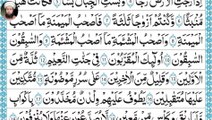 إِذَا رُجَّتِ ٱلْأَرْضُ رَجًّا ۝ وَبُسَّتِ ٱلْجِبَالُ بَسًّا ۝ فَكَانَتْ هَبَآءً
مُّنۢبَثًّا ۝ وَكُنتُمْ أَزْوَٰجًا ثَلَٰثَةً ۝ فَأَصْحَٰبُ ٱلْمَيْمَنَةِ مَآ أَصْحَٰبُ
ٱلْمَيْمَنَةِ ۝ وَأَصْحَٰبُ ٱلْمَشْـَٔمَةِ مَآ أَصْحَٰبُ ٱلْمَشْـَٔمَةِ ۝ وَٱلسَّٰبِقُونَ
ٱلسَّٰبِقُونَ ۝ أُو۟لَٰٓئِكَ ٱلْمُقَرَّبُونَ ۝ فِى جَنَّٰتِ ٱلنَّعِيمِ ۝ ثُلَّةٌ مِّنَ
ٱلْأَوَّلِينَ ۝ وَقَلِيلٌ مِّنَ ٱلْـَٔاخِرِينَ ۝ عَلَىٰ سُرُرٍ مَّوْضُونَةٍ ۝ مُّتَّكِـِٔينَ
عَلَيْهَا مُتَقَٰبِلِينَ ۝ يَطُوفُ عَلَيْهِمْ وِلْدَٰنٌ مُّخَلَّدُونَ ۝ بِأَكْوَابٍ